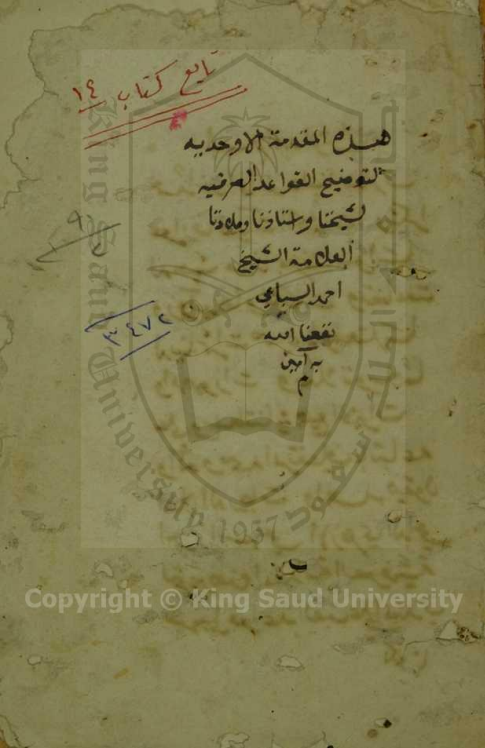 تابع كتاب ١٤
هذه المقدمة الاوحديه
لتوضيح القواعد الصرفيه
لشيخنا واستاذنا وملاذنا
العلامة الشيخ
احمد السباعي
نفعنا الله
به آمين
م
٩
٣٤٧٢
King Saud University
1957
Copyright © King Saud University